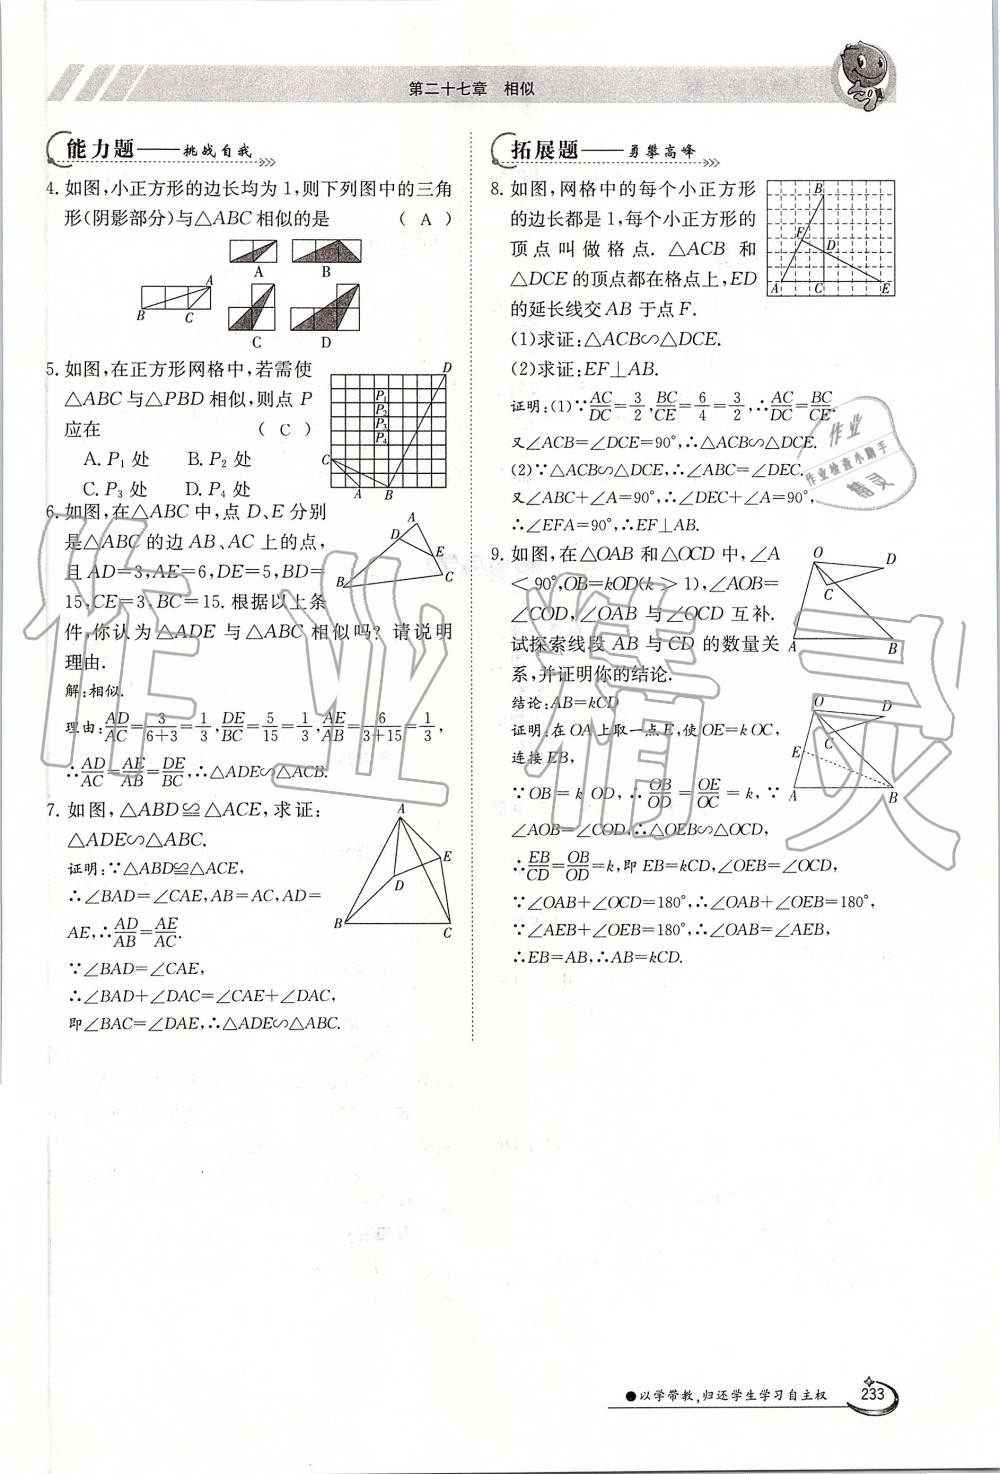 第二十七章 相似
能力题——挑战自我
4. 如图,小正方形的边长均为1,则下列图中的三角
形(阴影部分)与△ABC相似的是 ( A )
A B
A
B C
C D
5. 如图,在正方形网格中,若需使
△ABC与△PBD相似,则点P
应在 ( C )
A. P₁处 B. P₂处
C. P₃处 D. P₄处
D
P₁
P₂
P₃
P₄
C
A B
6. 如图,在△ABC中,点D、E分别
是△ABC的边AB、AC上的点,
且AD=3,AE=6,DE=5,BD=
15,CE=3,BC=15. 根据以上条
件,你认为△ADE与△ABC相似吗? 请说明
理由.
A
D
E
B C
解:相似.
理由:AD/AC=3/(6+3)=1/3,DE/BC=5/15=1/3,AE/AB=6/(3+15)=1/3,
∴AD/AC=AE/AB=DE/BC,∴△ADE∽△ACB.
7. 如图,△ABD≌△ACE,求证:
△ADE∽△ABC.
A
E
D
B C
证明:∵△ABD≌△ACE,
∴∠BAD=∠CAE,AB=AC,AD=
AE,∴AD/AB=AE/AC.
∵∠BAD=∠CAE,
∴∠BAD+∠DAC=∠CAE+∠DAC,
即∠BAC=∠DAE,∴△ADE∽△ABC.
拓展题——勇攀高峰
8. 如图,网格中的每个小正方形
的边长都是1,每个小正方形的
顶点叫做格点. △ACB和
△DCE的顶点都在格点上,ED
的延长线交AB于点F.
(1)求证:△ACB∽△DCE.
(2)求证:EF⊥AB.
B
F
D
A C E
证明:(1)∵AC/DC=3/2,BC/CE=6/4=3/2,∴AC/DC=BC/CE.
又∠ACB=∠DCE=90°,∴△ACB∽△DCE.
(2)∵△ACB∽△DCE,∴∠ABC=∠DEC.
又∠ABC+∠A=90°,∴∠DEC+∠A=90°,
∴∠EFA=90°,∴EF⊥AB.
9. 如图,在△OAB和△OCD中,∠A
<90°,OB=kOD(k>1),∠AOB=
∠COD,∠OAB与∠OCD互补.
试探索线段AB与CD的数量关
系,并证明你的结论.
O D
C
A B
结论:AB=kCD
证明:在OA上取一点E,使OE=kOC,
连接EB,
O D
C
E
A B
∵OB=kOD,∴OB/OD=OE/OC=k,∵
∠AOB=∠COD,∴△OEB∽△OCD,
∴EB/CD=OB/OD=k,即EB=kCD,∠OEB=∠OCD,
∵∠OAB+∠OCD=180°,∴∠OAB+∠OEB=180°,
∵∠AEB+∠OEB=180°,∴∠OAB=∠AEB,
∴EB=AB,∴AB=kCD.
作业精灵
作业
作业检查小助手
精灵
●以学带教,归还学生学习自主权
233